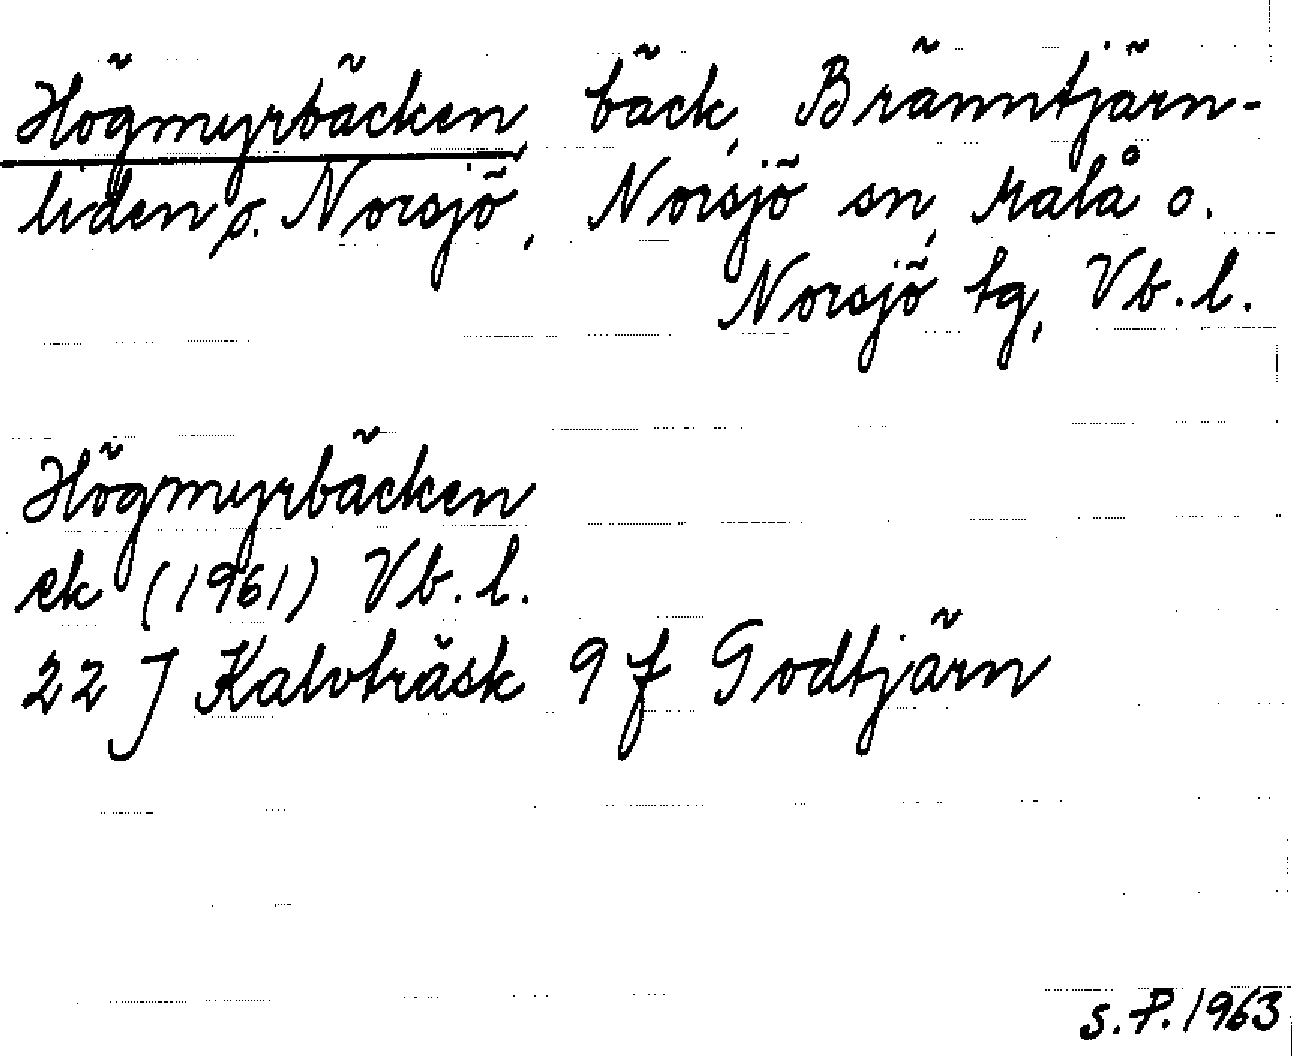 Högmyrbäcken, bäck, Bränntjärn-
liden o. Norsjö, Norsjö sn, Malå o.
Norsjö tg, Vb.l.
Högmyrbäcken
ek (1961) Vb.l.
22 J Kalvträsk 9 f Godtjärn
S.P. 1963